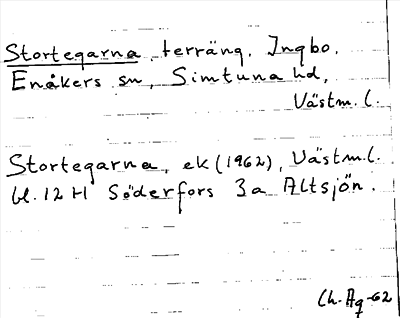 Stortegarna, terräng, Ingbo,
Enåkers sn, Simtuna hd,
Västm. l.
Stortegarna, ek (1962), Västm.l.
bl. 12 H Söderfors 3a Altsjön.
Ch. Ag-62